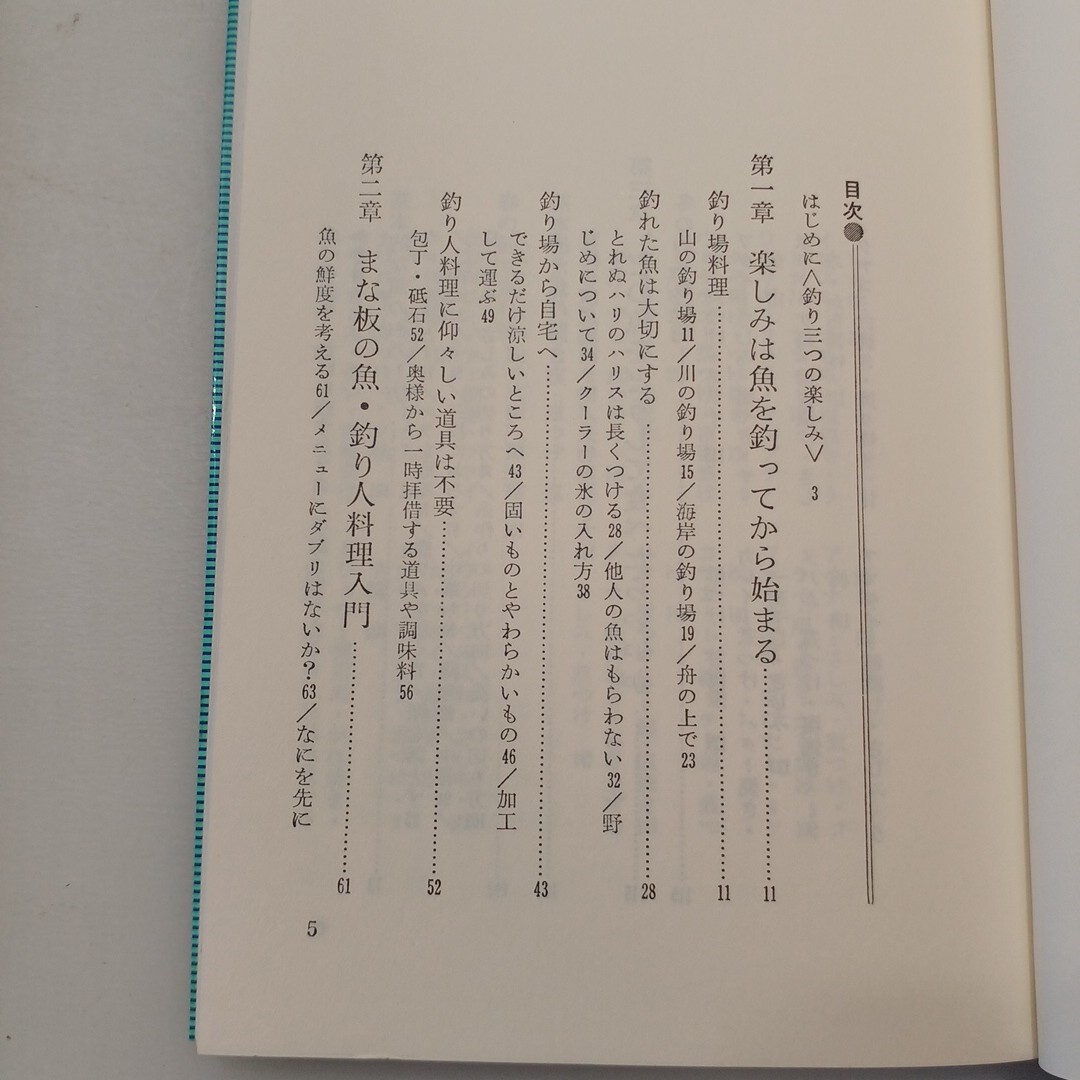 目次●
はじめに＜釣り三つの楽しみ＞ 3
第一章 楽しみは魚を釣ってから始まる……………11
釣り場料理……………11
山の釣り場11／川の釣り場15／海岸の釣り場19／舟の上で23
釣れた魚は大切にする……………28
とれぬハリのハリスは長くつける28／他人の魚はもらわない32／野
じめについて34／クーラーの氷の入れ方38
釣り場から自宅へ……………43
できるだけ涼しいところへ43／固いものとやわらかいもの46／加工
して運ぶ49
釣り人料理に仰々しい道具は不要……………52
包丁・砥石52／奥様から一時拝借する道具や調味料56
第二章 まな板の魚・釣り人料理入門……………61
魚の鮮度を考える61／メニューにダブリはないか？63／なにを先に
5